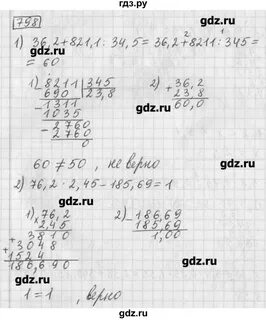 798
1) 36,2+821,1 : 34,5 = 36,2+8211 : 345 =
= 60
1) 8211 | 345
690 | 23,8
- 1311
1035
- 2760
2760
0
2) + 36,2
23,8
60,0
60 ≠ 50, не верно
2) 76,2 · 2,45 - 185,69 = 1
1) × 76,2
2,45
3810
+ 3048
+ 1524
186,690
2) - 186,69
185,69
1,00
1 = 1, верно
gdz.ru
gdz.ru
gdz.ru
gdz.ru
gdz.ru
gdz.ru
gdz.ru